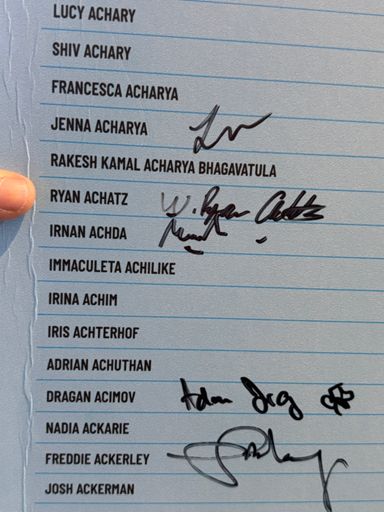 LUCY ACHARY
SHIV ACHARY
FRANCESCA ACHARYA
JENNA ACHARYA
RAKESH KAMAL ACHARYA BHAGAVATULA
RYAN ACHATZ W. Ryan Achatz
IRNAN ACHDA
IMMACULETA ACHILIKE
IRINA ACHIM
IRIS ACHTERHOF
ADRIAN ACHUTHAN
DRAGAN ACIMOV
NADIA ACKARIE
FREDDIE ACKERLEY
JOSH ACKERMAN